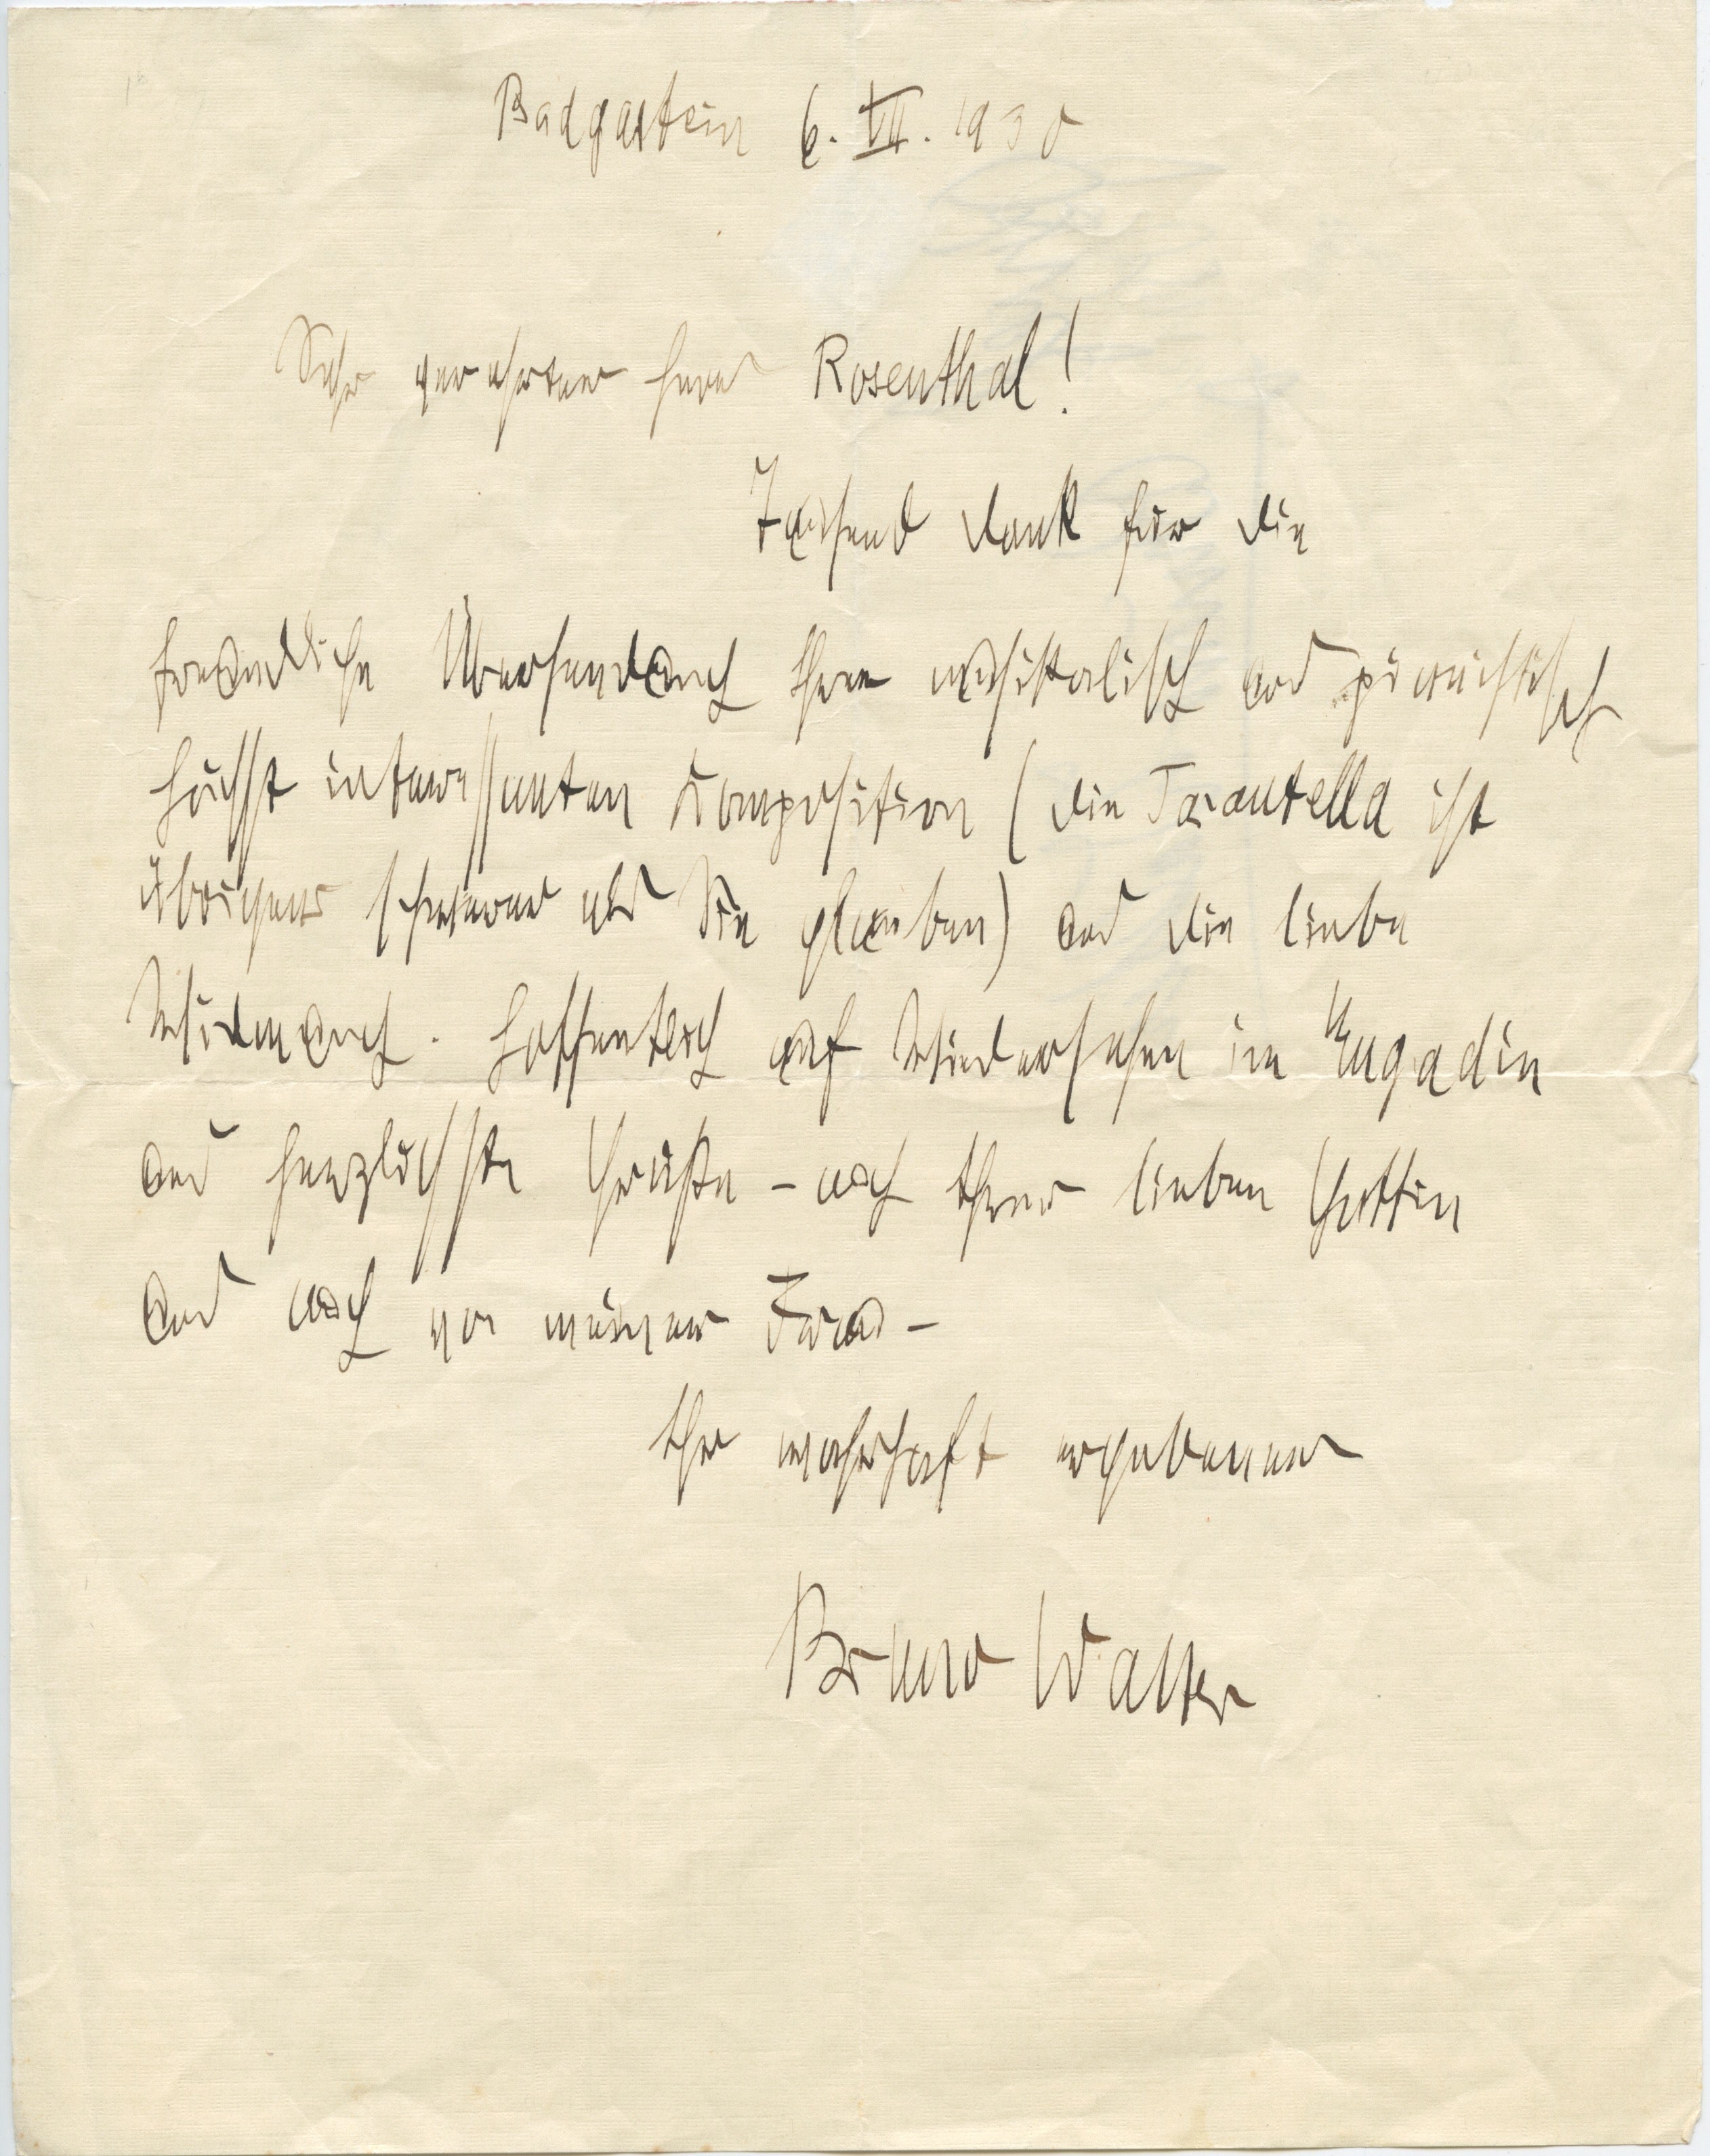 Badgastein 6. VII. 1930
Sehr verehrter Herr Rosenthal!
Tausend Dank für die
freundliche Übersendung Ihrer musikalisch und pianistisch
höchst interessanten Komposition (die Tarantella ist
übrigens schwerer als Sie glauben) und die liebe
Widmung. Hoffentlich auf Wiedersehen im Engadin
und herzlichste Grüße – auch Ihrer lieben Gattin
und auch von meiner Frau –
Ihr wahrhaft ergebener
Bruno Walter